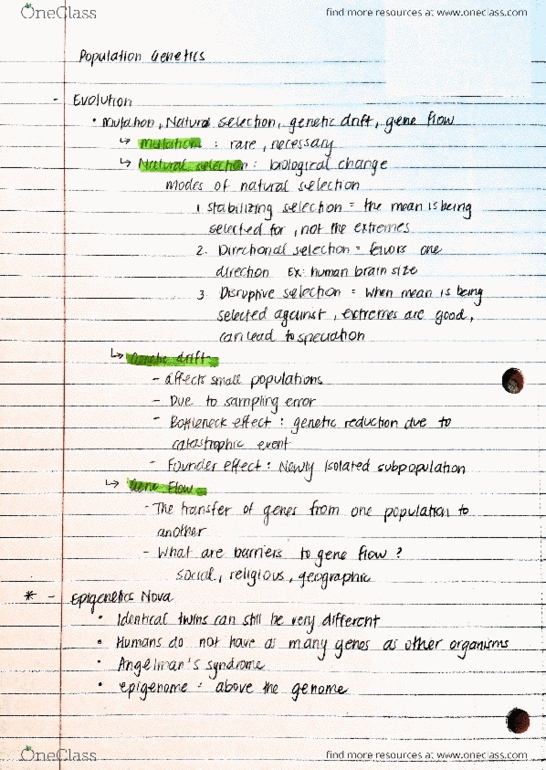 OneClass
find more resources at www.oneclass.com
Population Genetics
- Evolution
• Mutation, Natural selection, genetic drift, gene flow
↳ mutation : rare, necessary
↳ Natural selection : biological change
modes of natural selection
1. Stabilizing selection = the mean is being
selected for, not the extremes
2. Directional selection = favors one
direction Ex: human brain size
3. Disruptive selection = When mean is being
selected against, extremes are good,
can lead to speciation
↳ Genetic drift
- affects small populations
- Due to sampling error
- Bottleneck effect : genetic reduction due to
catastrophic event
- Founder effect : Newly isolated subpopulation
↳ Gene Flow
- The transfer of genes from one population to
another
- What are barriers to gene flow ?
social, religious, geographic
* - Epigenetics Nova
• Identical twins can still be very different
• Humans do not have as many genes as other organisms
• Angelman's syndrome
• epigenome = above the genome
OneClass
find more resources at www.oneclass.com